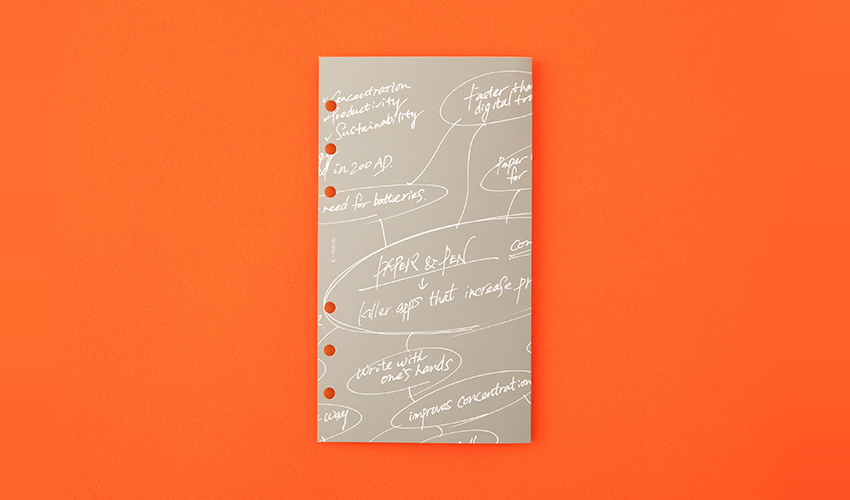 ✓ Concentration
✓ Productivity
✓ Sustainability
in 200 AD.
need for batteries.
Faster tha
digital too
Paper
for
PAPER & PEN
↓
killer apps that increase pr
con
Write with
one's hands
improves concentration
way